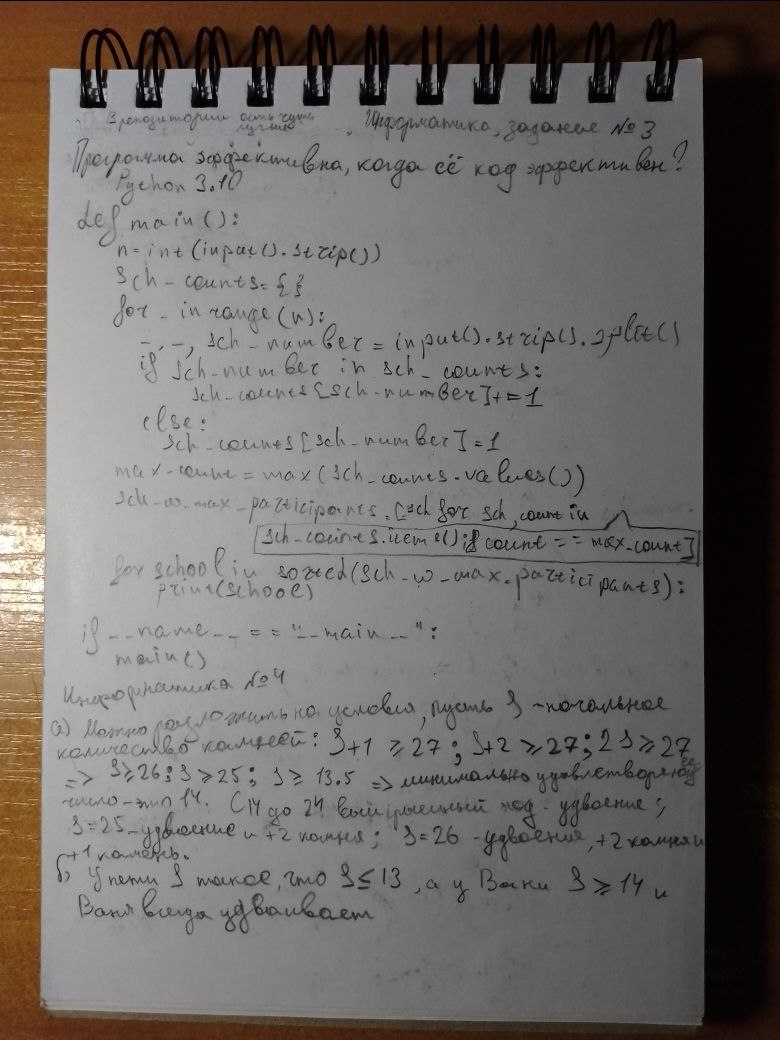 В репозитории есть чуть
лучше
Информатика, задание №3
Программа эффективна, когда её код эффективен?
Python 3.10
def main():
n=int(input().strip())
sch_counts={}
for _ in range(n):
_, _, sch_number = input().strip().split()
if sch_number in sch_counts:
sch_counts[sch_number]+=1
else:
sch_counts[sch_number]=1
max_count = max(sch_counts.values())
sch_w_max_participants=[sch for sch, count in
sch_counts.items() if count == max_count]
for school in sorted(sch_w_max_participants):
print(school)
if __name__ == "__main__":
main()
Информатика №4
а) Можно разложить на условия, пусть S - начальное
количество камней: S+1 ≥ 27; S+2 ≥ 27; 2S ≥ 27
=> S≥26; S≥25; S ≥ 13.5 => минимально удовлетворяющее
число - это 14. С 14 до 24 выигрышный ход - удвоение;
S=25 - удвоение и +2 камня; S=26 - удвоение, +2 камня и
+1 камень.
б) У пети S такое, что S≤13, а у Вани S ≥ 14 и
Ваня всегда удваивает